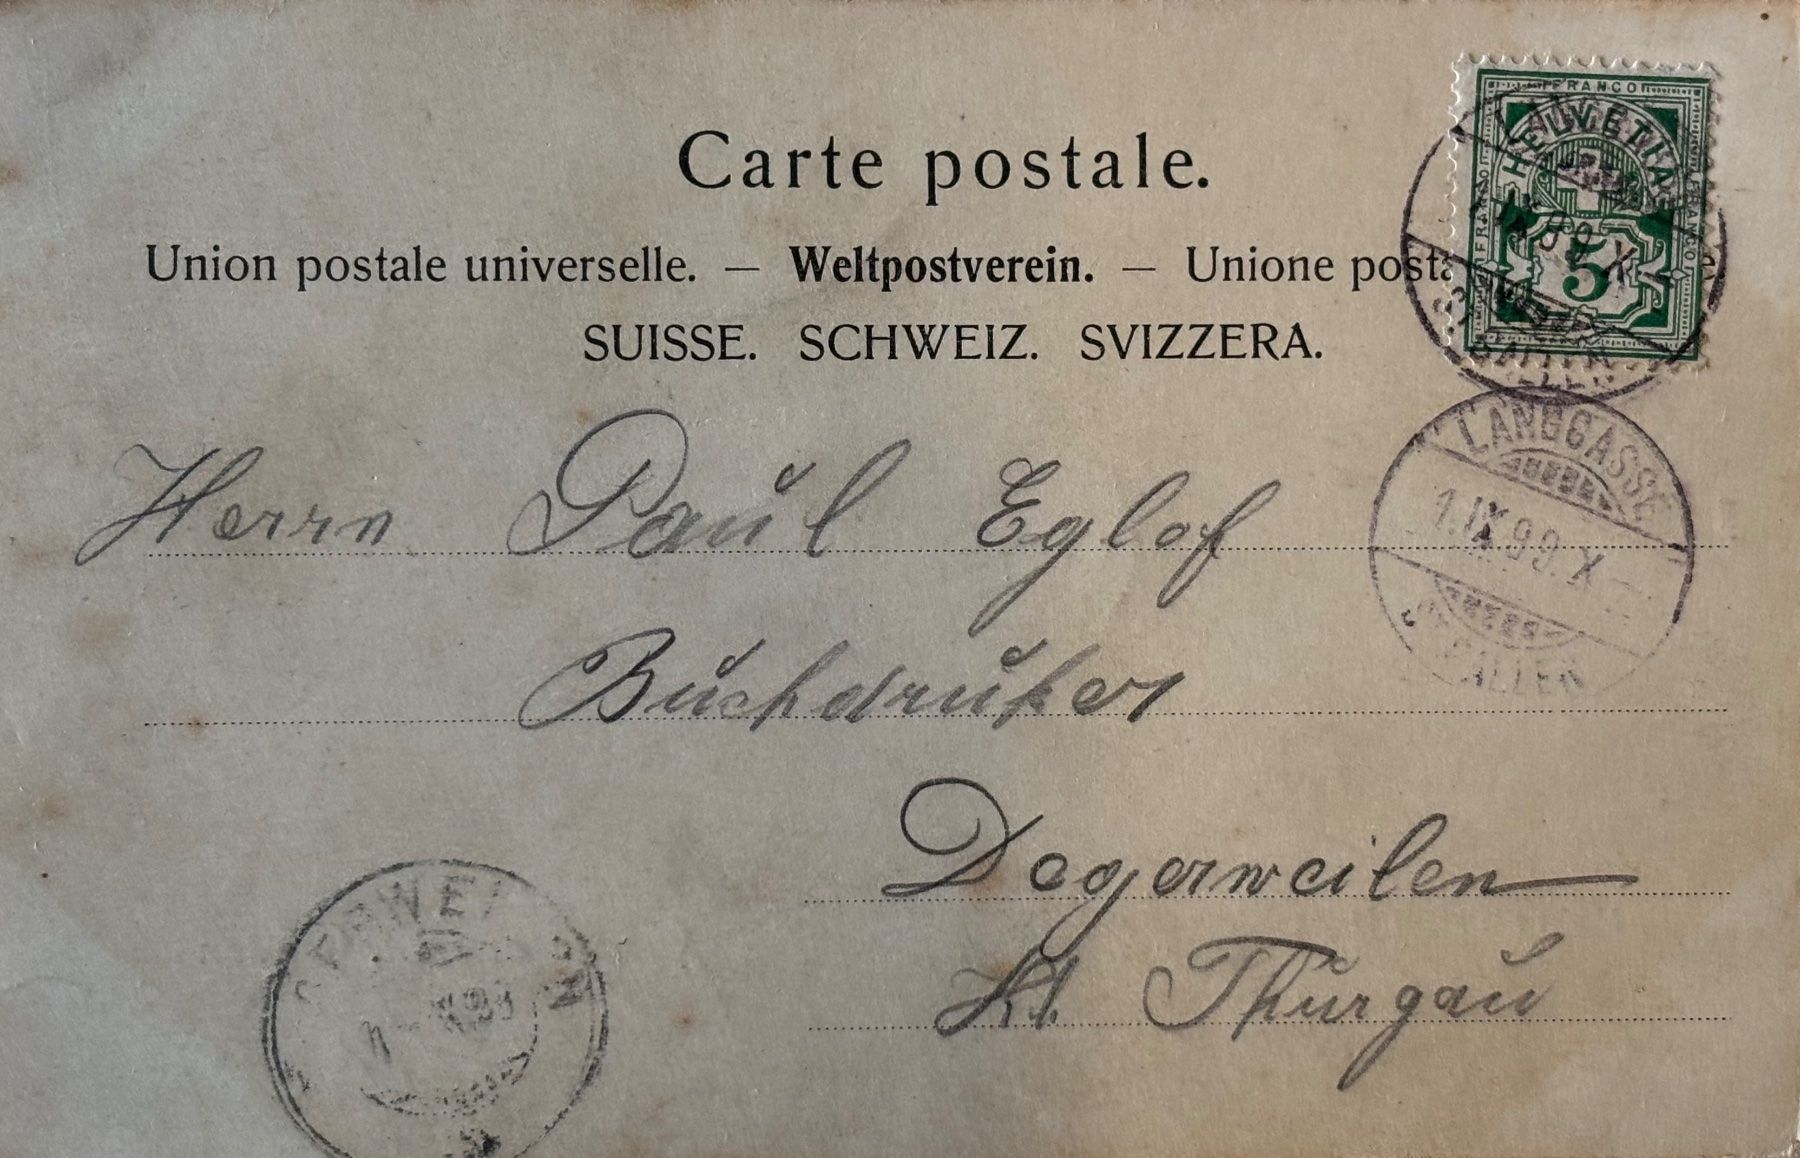 Carte postale.
Union postale universelle. — Weltpostverein. — Unione posta
SUISSE. SCHWEIZ. SVIZZERA.
FRANCO
HELVETIA
5
IX 99. X
ST. GALLEN
LANGGASSE
1. IX 99. X
ST. GALLEN
Herrn Paul Eglof
Buchdruker
Degerweilen
Kt. Thurgau